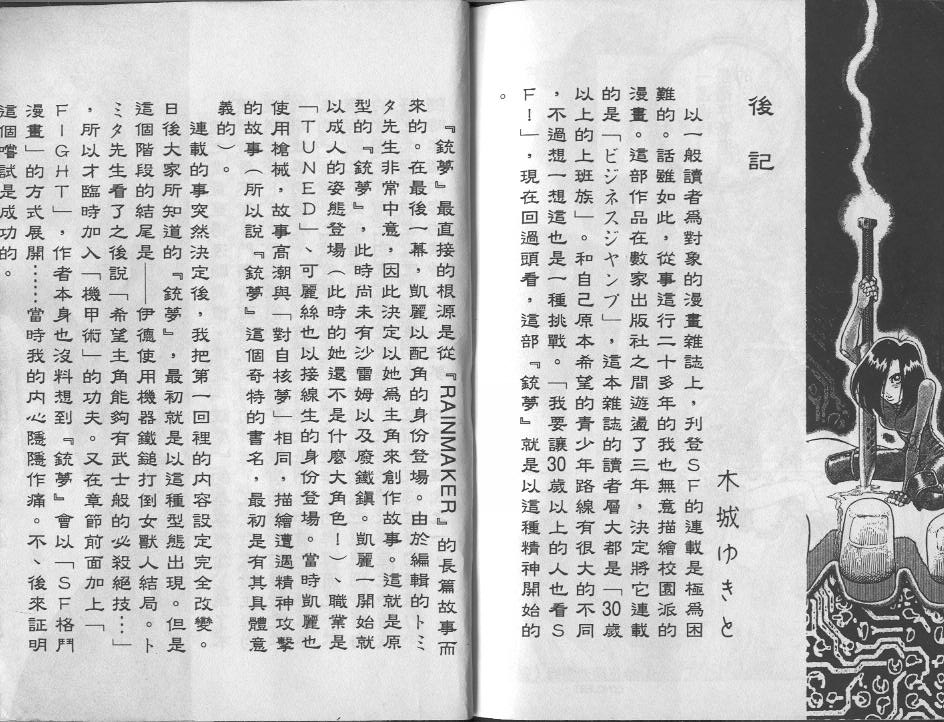 後記
木城ゆきと
以一般讀者爲對象的漫畫雜誌上，刋登ＳＦ的連載是極爲困
難的。話雖如此，從事這行二十多年的我也無意描繪校園派的
漫畫。這部作品在數家出版社之間遊盪了三年，決定將它連載
的是「ビジネスジャンプ」，這本雜誌的讀者層大都是「30歲
以上的上班族」。和自己原本希望的靑少年路線有很大的不同
，不過想一想這也是一種挑戰。「我要讓30歲以上的人也看Ｓ
Ｆ！」，現在回過頭看，這部『銃夢』就是以這種精神開始的
。
『銃夢』最直接的根源是從『RAINMAKER』的長篇故事而
來的。在最後一幕，凱麗以配角的身份登場。由於編輯的トミ
タ先生非常中意，因此決定以她爲主角來創作故事。這就是原
型的『銃夢』，此時尚未有沙雷姆以及廢鐵鎭。凱麗一開始就
以成人的姿態登場（此時的她還不是什麼大角色！）、職業是
「ＴＵＮＥＤ」、可麗絲也以接線生的身份登場。當時凱麗也
使用槍械，故事高潮與「對自核夢」相同，描繪遭遇精神攻擊
的故事（所以說『銃夢』這個奇特的書名，最初是有其具體意
義的）。
連載的事突然決定後，我把第一回裡的內容設定完全改變。
日後大家所知道的『銃夢』，最初就是以這種型態出現。但是
這個階段的結尾是——伊德使用機器鐵鎚打倒女獸人結局。ト
ミタ先生看了之後說「希望主角能夠有武士般的必殺絕技…」
，所以才臨時加入「機甲術」的功夫。又在章節前面加上「
ＦＩＧＨＴ」，作者本身也沒料想到『銃夢』會以「ＳＦ格鬥
漫畫」的方式展開……當時我的內心隱隱作痛。不、後來証明
這個嚐試是成功的。